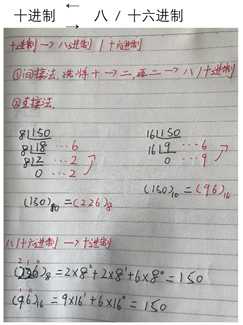 十进制 ←→ 八 / 十六进制
十进制 —> 八进制 / 十六进制
①间接法, 先将十→二, 再二→八/十六进制
②直接法.
8|150 16|150
8|18 …6 16|9 …6
8|2 …2 0 …9
0 …2
(150)10=(226)8 (150)10=(96)16
八/十六进制 —> 十进制
2 1 0
(226)8=2×8²+2×8¹+6×8⁰=150
1 0
(96)16=9×16¹+6×16⁰=150